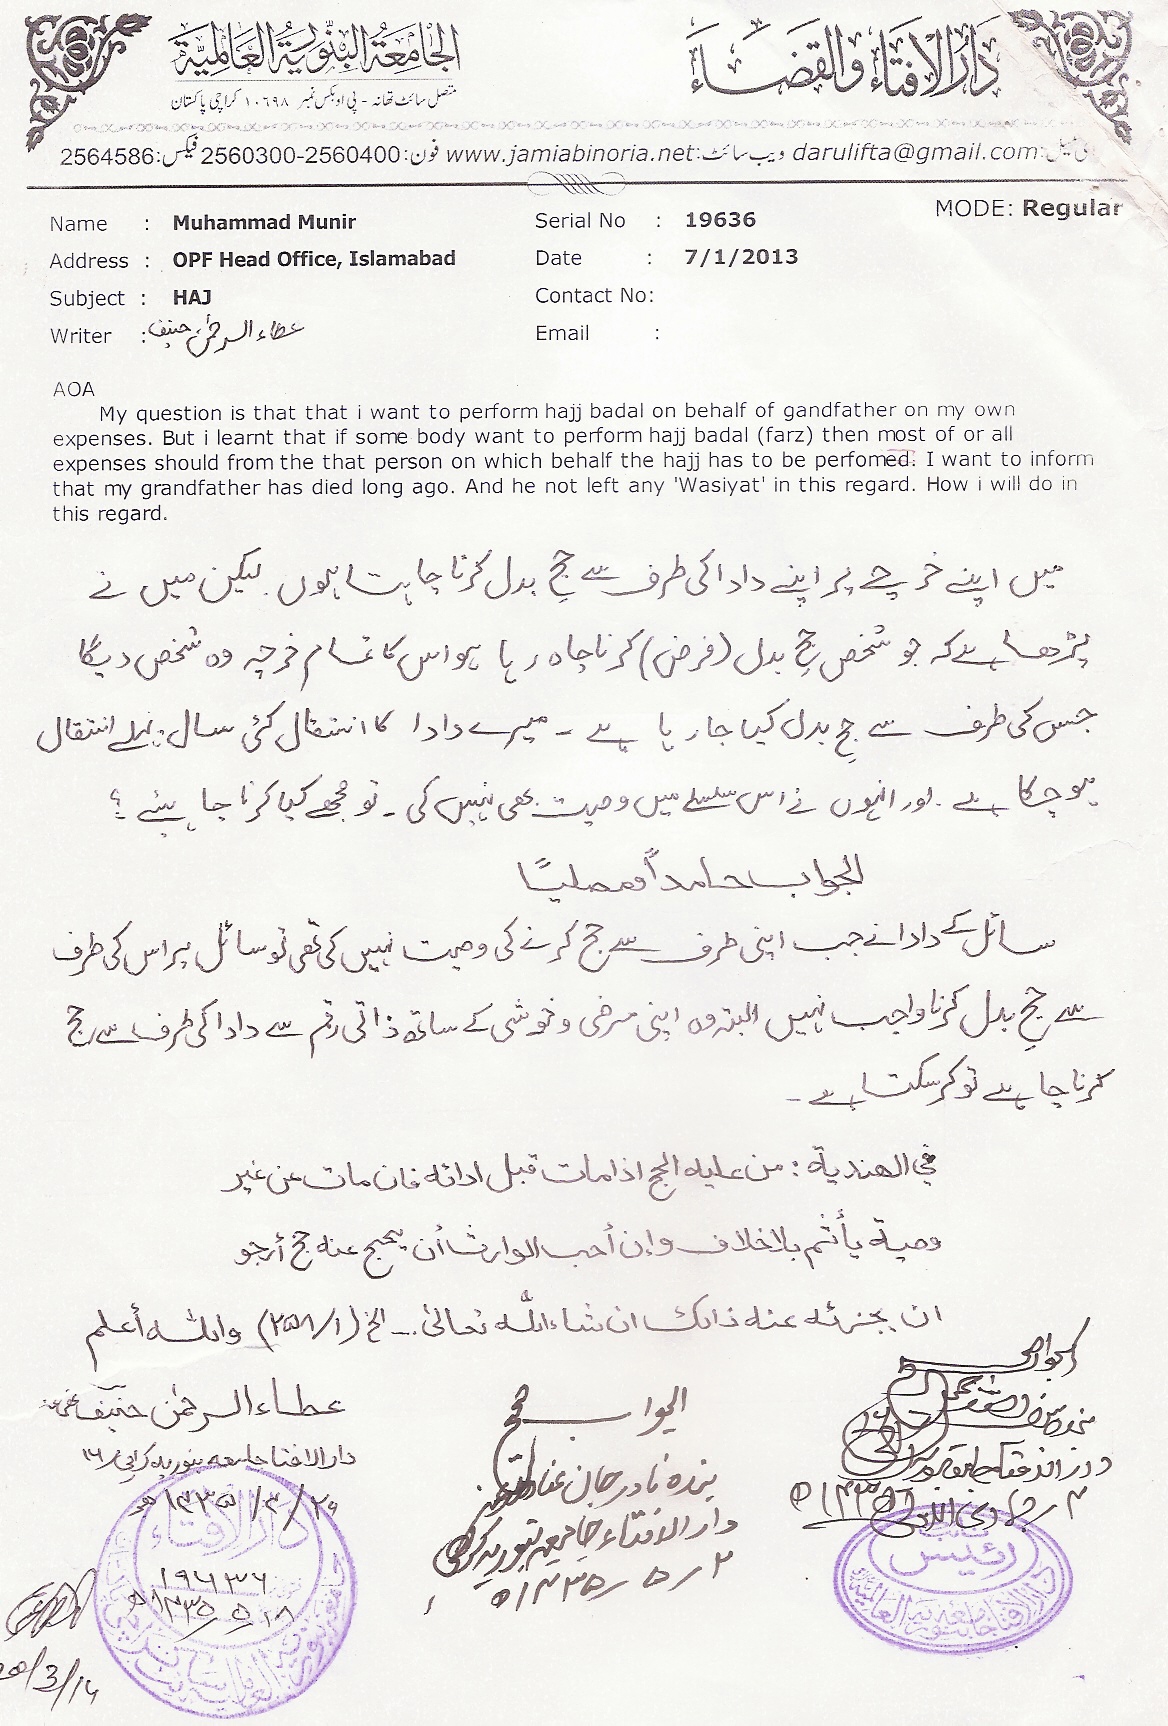 دار الافتاء والقضاء
الجامعة البنورية العالمية
متصل سائٹ تھانہ - پی او بکس نمبر ۱۰۶۹۸ کراچی پاکستان
darulifta@gmail.com ویب سائٹ: www.jamiabinoria.net فون: 2560300-2560400 فیکس: 2564586
MODE: Regular
Name : Muhammad Munir Serial No : 19636
Address : OPF Head Office, Islamabad Date : 7/1/2013
Subject : HAJ Contact No:
Writer : عطاء الرحمٰن حنیف Email :
AOA
My question is that that i want to perform hajj badal on behalf of gandfather on my own
expenses. But i learnt that if some body want to perform hajj badal (farz) then most of or all
expenses should from the that person on which behalf the hajj has to be perfomed. I want to inform
that my grandfather has died long ago. And he not left any 'Wasiyat' in this regard. How i will do in
this regard.
میں اپنے خرچے پر اپنے دادا کی طرف سے حج بدل کرنا چاہتا ہوں لیکن میں نے
پڑھا ہے کہ جو شخص حج بدل (فرض) کرنا چاہ رہا ہو اس کا تمام خرچہ وہ شخص دیگا
جس کی طرف سے حج بدل کیا جا رہا ہے ۔ میرے دادا کا انتقال کئی سال پہلے انتقال
ہو چکا ہے اور انہوں نے اس سلسلے میں وصیت بھی نہیں کی ۔ تو مجھے کیا کرنا چاہیئے ؟
الجواب حامداً ومصلیًا
سائل کے دادا نے جب اپنی طرف سے حج کرنے کی وصیت نہیں کی تھی تو سائل پر اس کی طرف
سے حج بدل کرنا واجب نہیں البتہ وہ اپنی مرضی و خوشی کے ساتھ ذاتی رقم سے دادا کی طرف سے حج
کرنا چاہے تو کر سکتا ہے ۔
في الهندية : من عليه الحج اذا مات قبل ادائه فان مات عن غير
وصية يأثم بلا خلاف وإن أحب الوارث أن يحج عنه حج أرجو
ان يجزئه عنه ذلك ان شاء الله تعالىٰ ... الخ (۱/۲۵۸) والله أعلم
عطاء الرحمٰن حنیف عفی عنہ
دار الافتاء جامعہ بنوریہ کراچی ۱۶
۲۹/۴/۱۴۳۵ھ
دار الافتاء
۱۹۶۳۶
الجواب صحیح
بندہ نادر جان
دار الافتاء جامعہ بنوریہ کراچی
۲/۵/۱۴۳۵ھ
الجواب صحیح
رئیس
دار الافتاء جامعہ بنوریہ العالمیہ